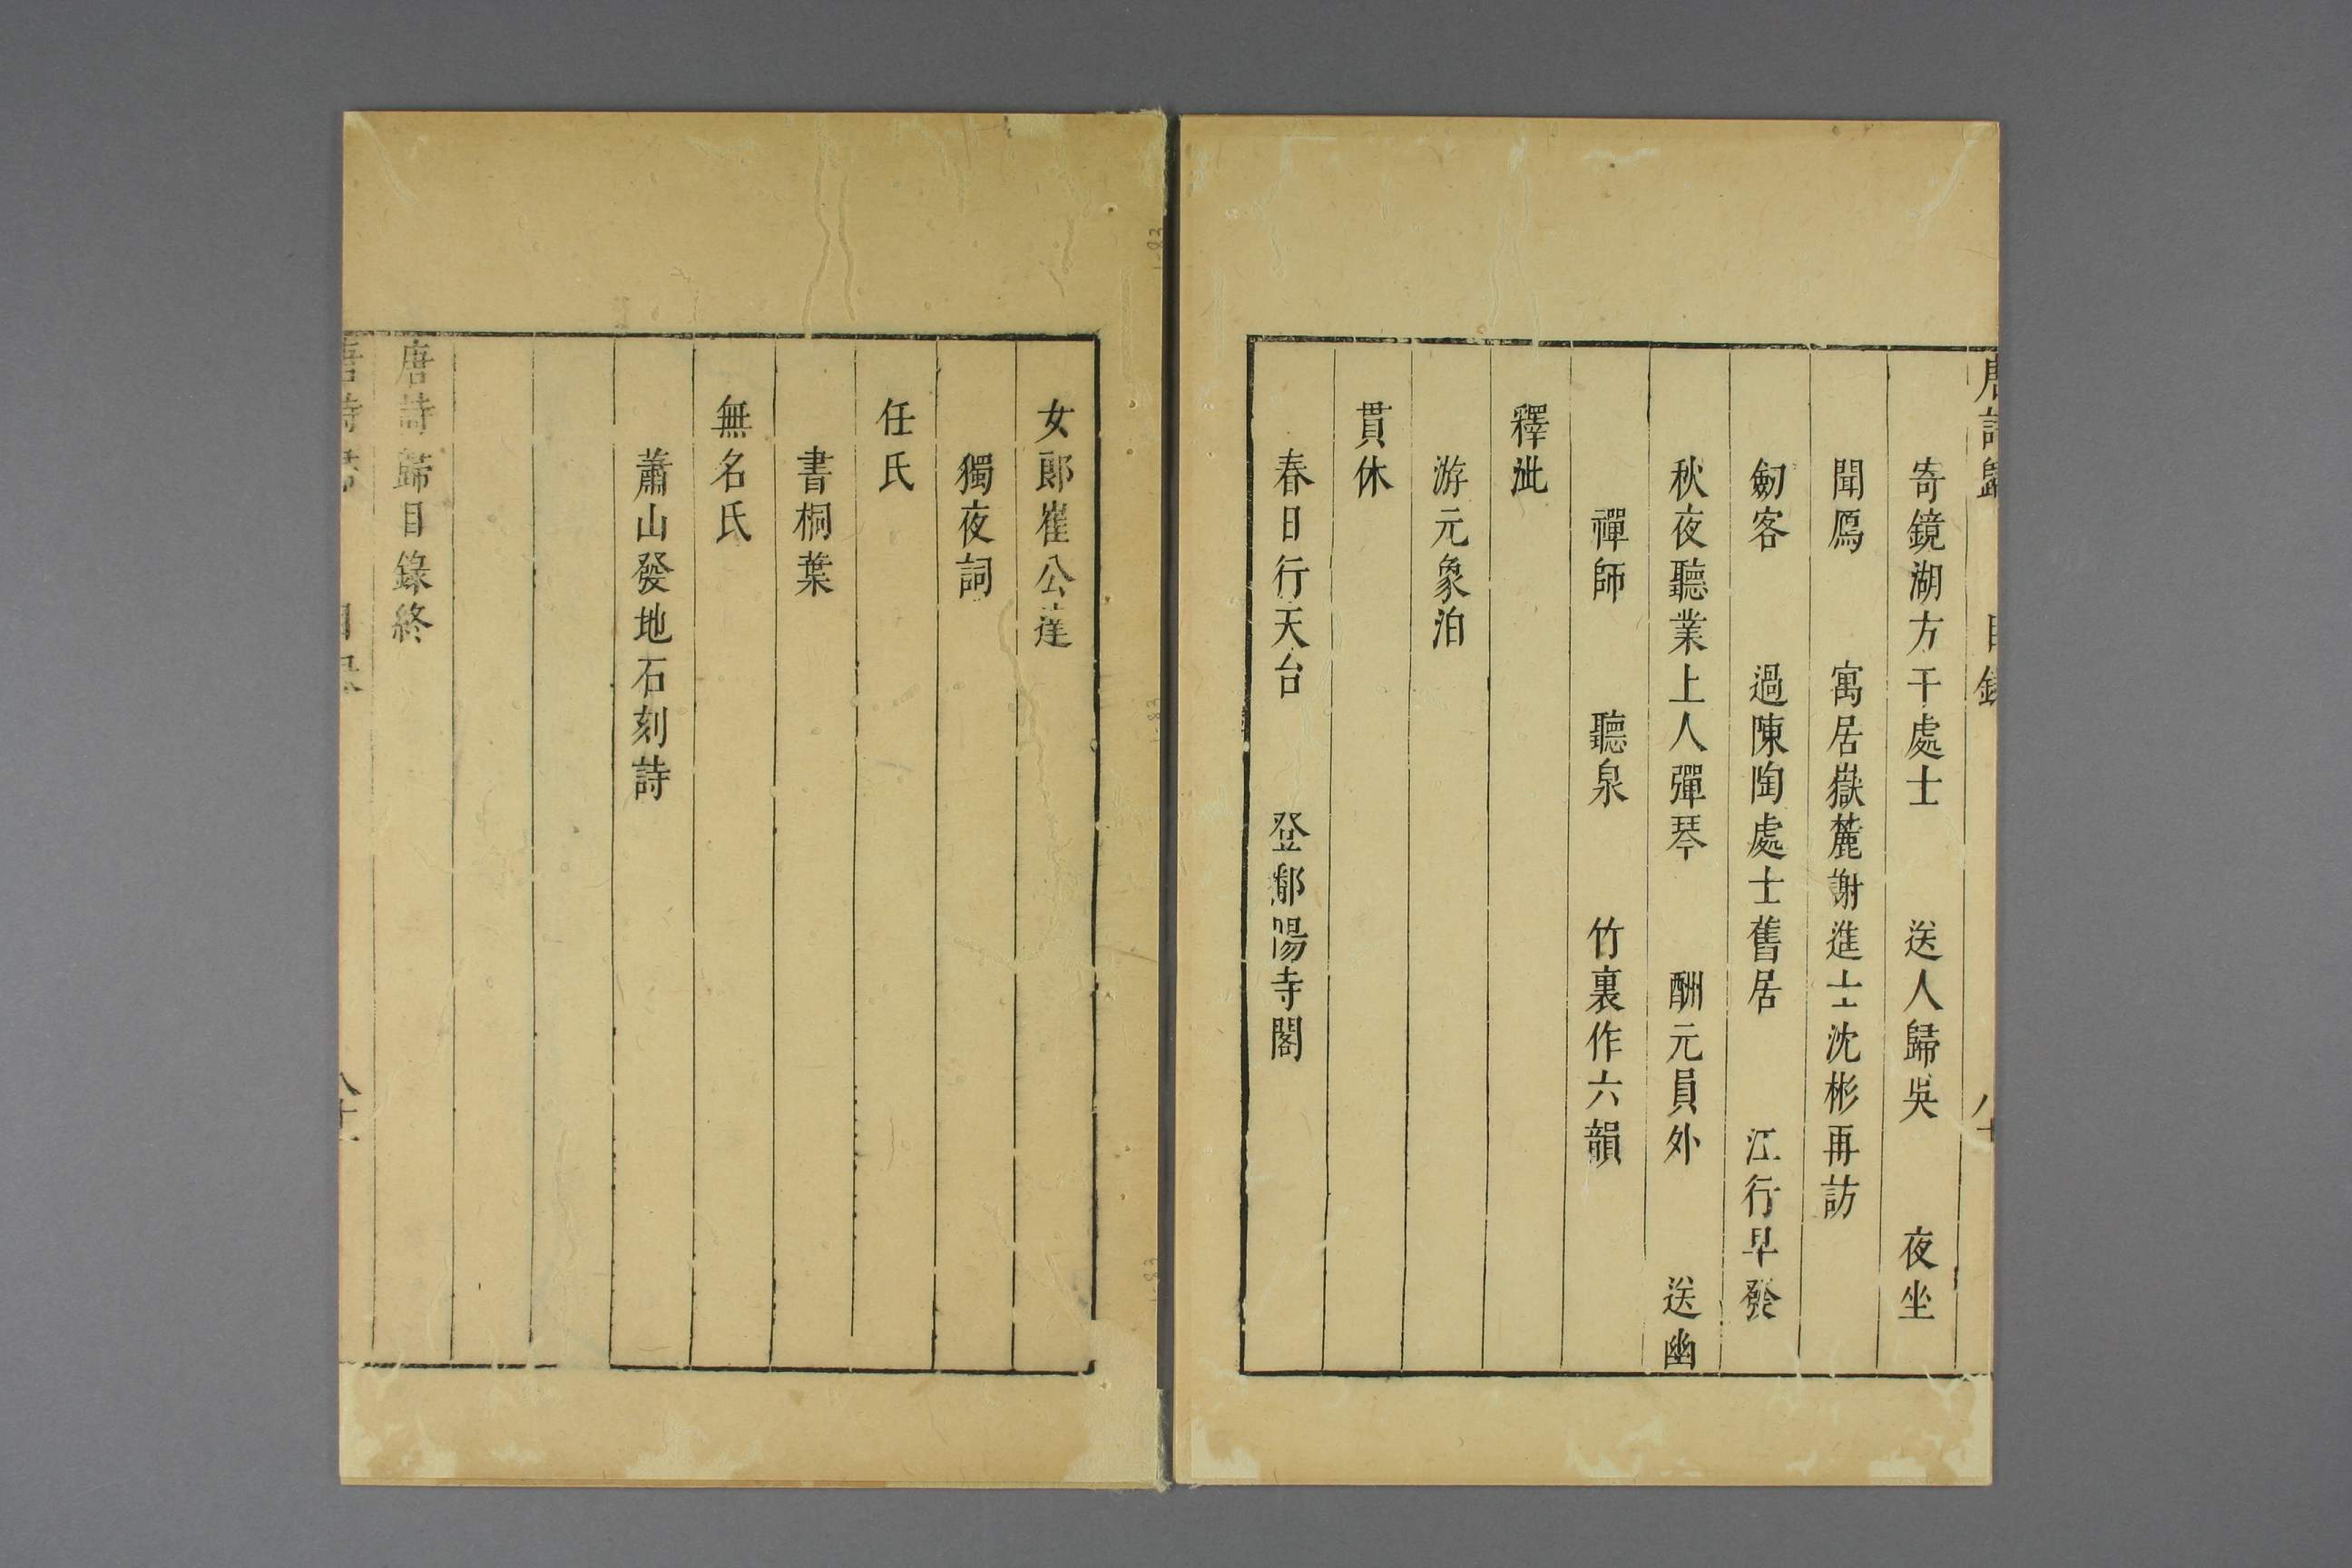 唐詩歸 目錄 八十
寄鏡湖方干處士 送人歸吳 夜坐
聞鴈 寓居嶽麓謝進士沈彬再訪
劒客 過陳陶處士舊居 江行早發
秋夜聽業上人彈琴 酬元員外 送幽
禪師 聽泉 竹裏作六韻
釋泚
游元象泊
貫休
春日行天台 登鄱陽寺閣
女郎崔公逹
獨夜詞
任氏
書桐葉
無名氏
蕭山發地石刻詩
唐詩歸目錄終
唐詩歸 目錄